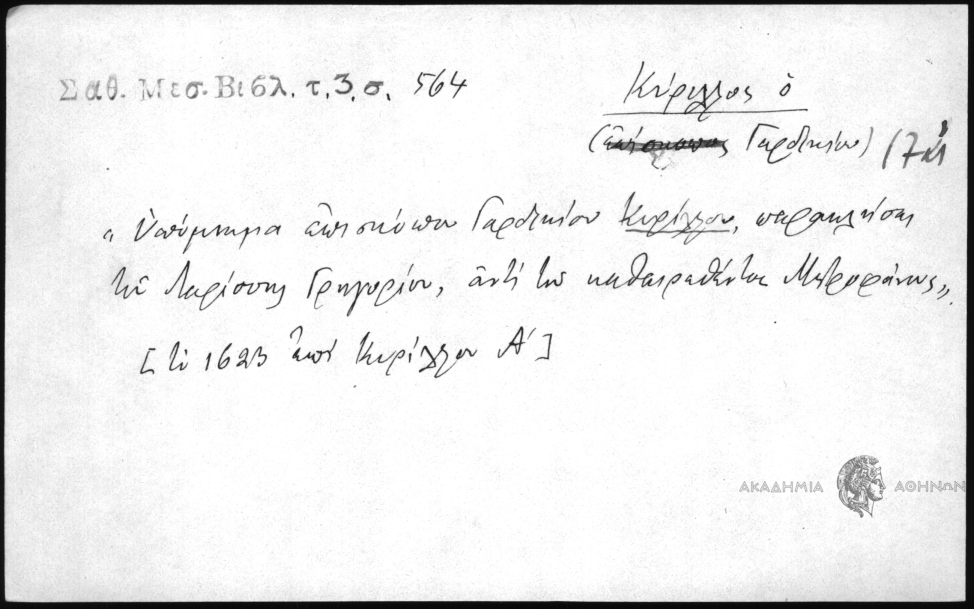 Σαθ. Μεσ. Βιβλ. τ. 3. σ. 564
Κύριλλος ὁ
(ἐπίσκοπος Γαρδικίου)
«Ὑπόμνημα ἐπισκόπου Γαρδικίου Κυρίλλου, παρακλήσει
τοῦ Λαρίσσης Γρηγορίου, ἀντὶ τοῦ καθαιρεθέντος Μητροφάνους».
[τὸ 1623 ἐπὶ Κυρίλλου Α´]
ΑΚΑΔΗΜΙΑ ΑΘΗΝΩΝ